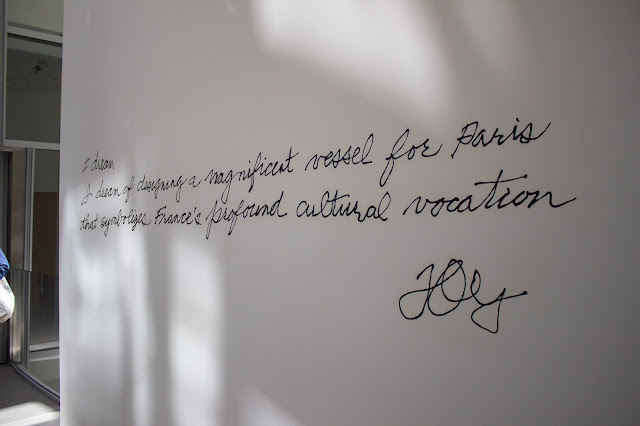 I dream
I dream of designing a magnificent vessel for Paris
that symbolizes France's profound cultural vocation
FOG